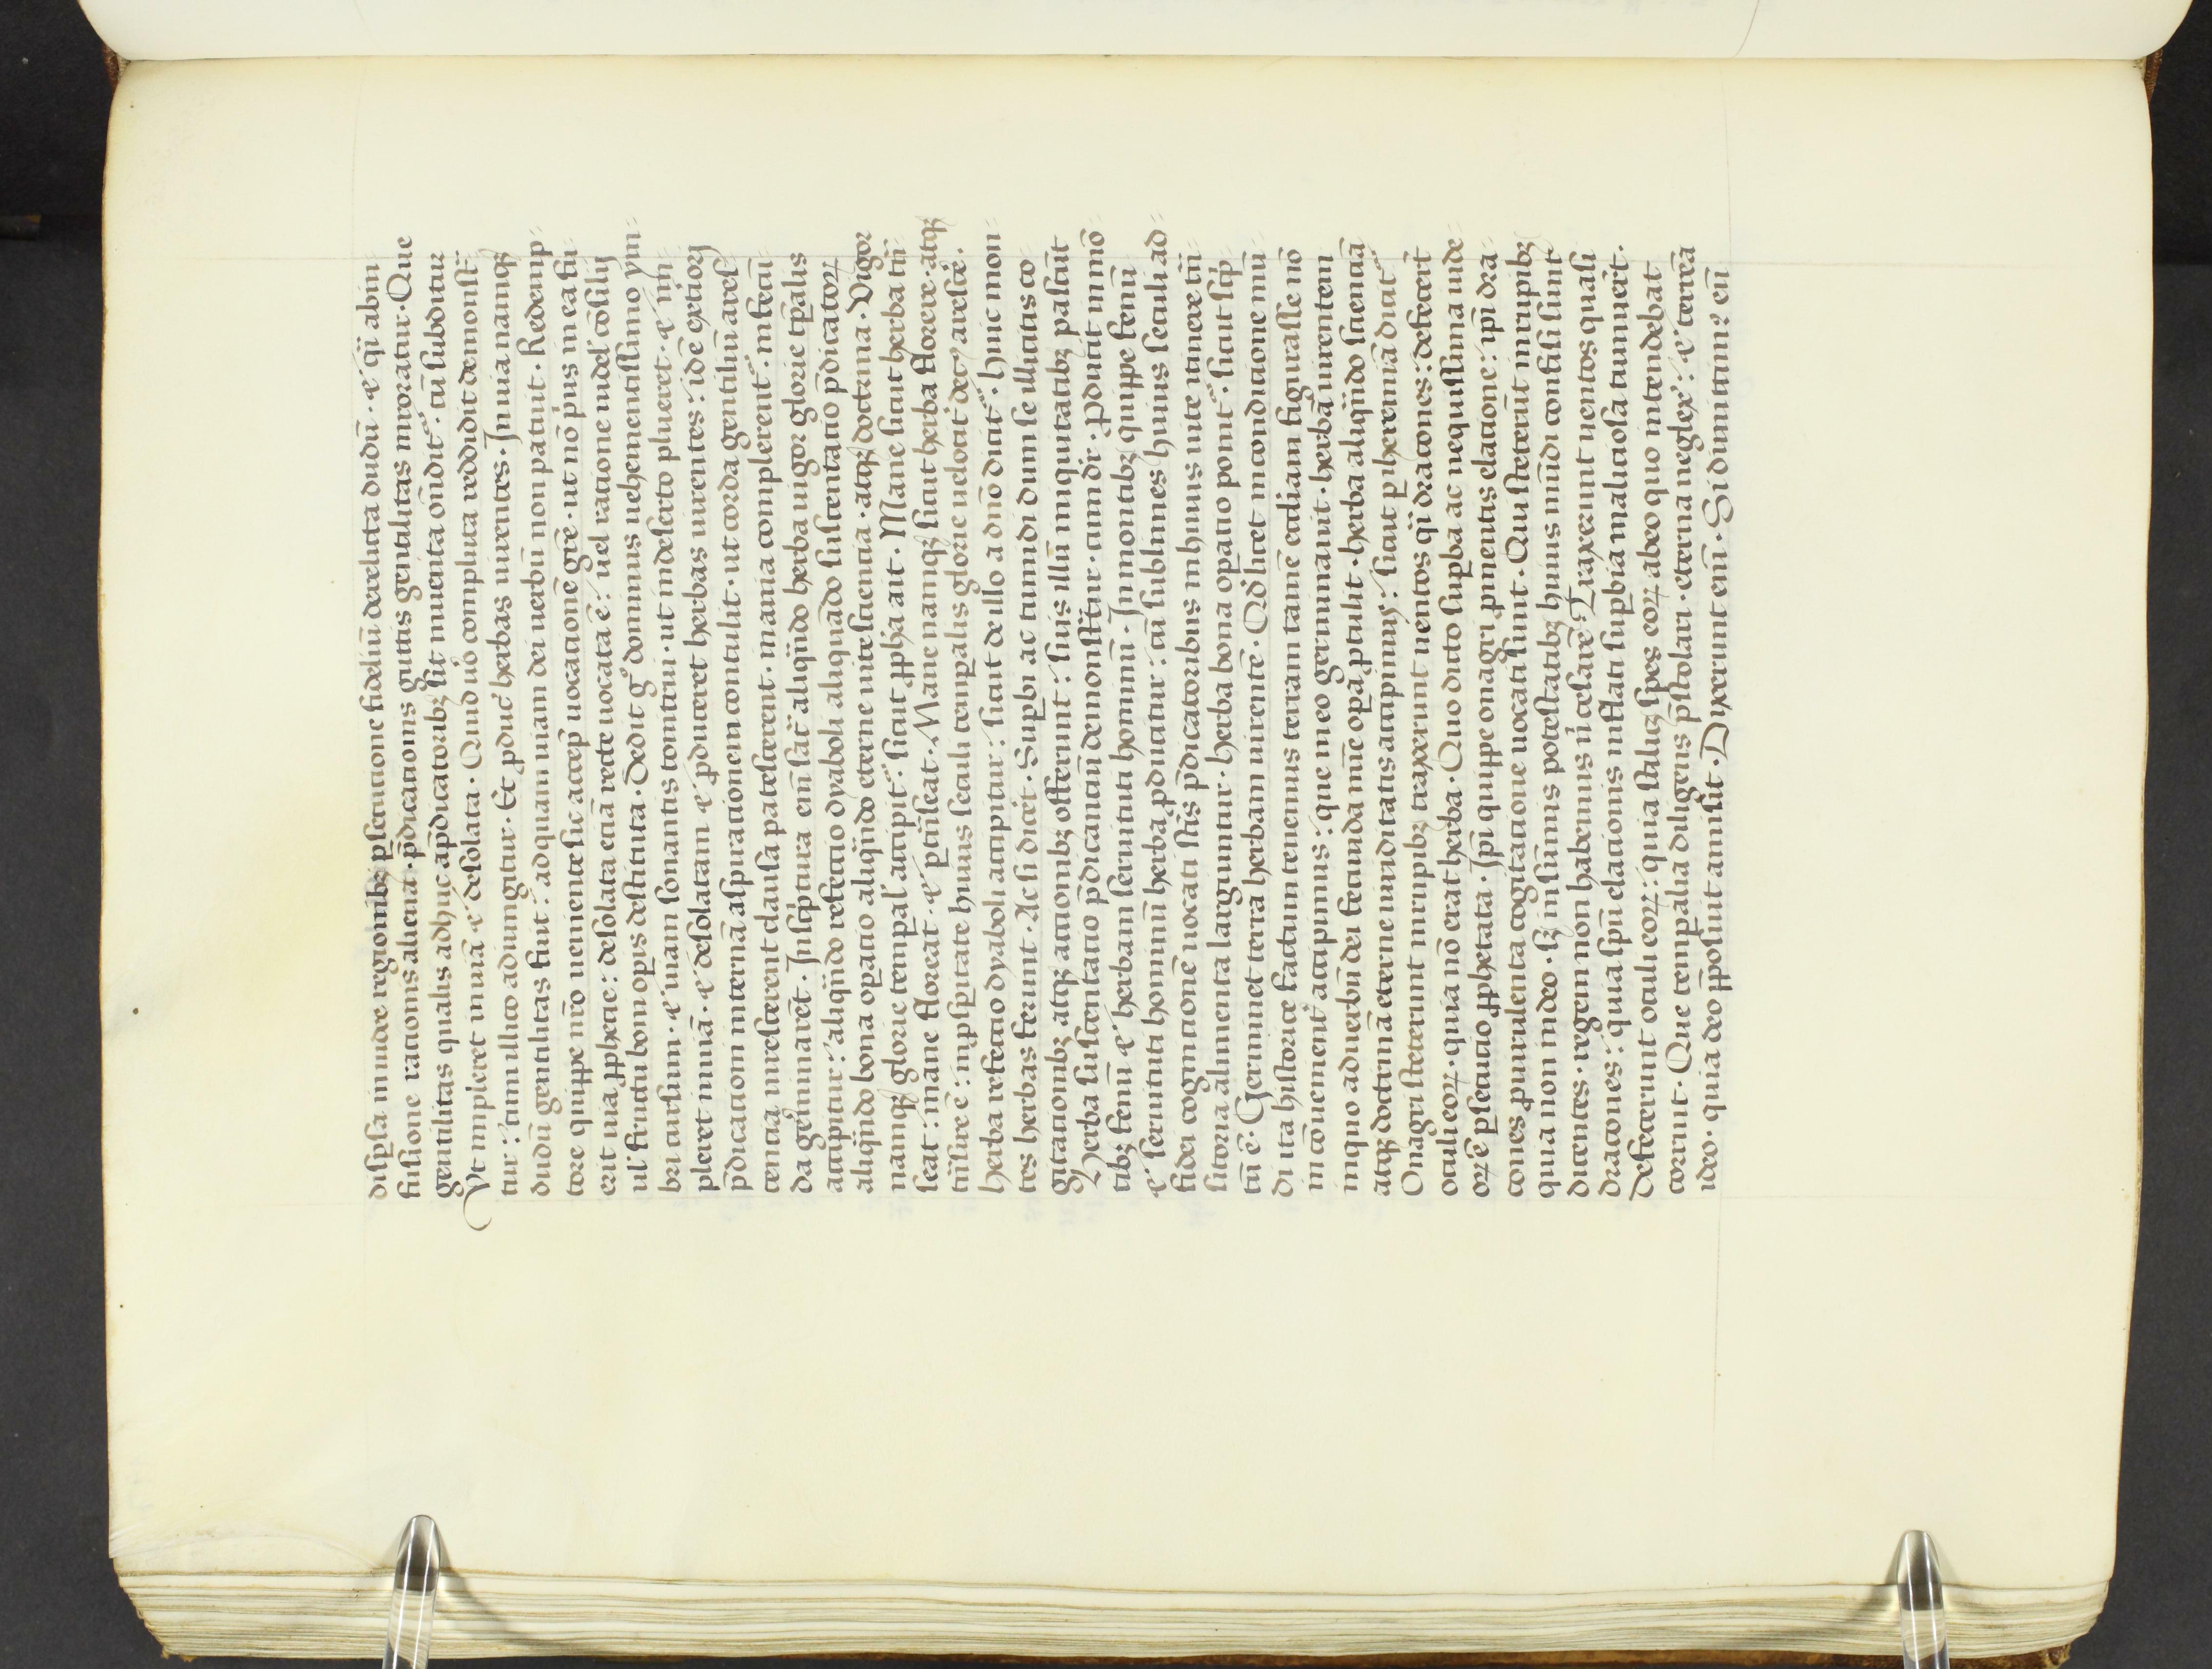 dispsa in iudee regionibꝫ psecutione fideliū derelicta dudū · ⁊ q̈ abin
fusione rationis aliena · p̄dicationis guttis gentilitas irroratur · Que
gentilitas qualis adhuc ap̄dicatoribꝫ sit inuenta on̄dit᷑ · cū subditur
Vt impleret inuiā ⁊ desolata · Quid uo᷑ compluta reddidit demonst̄
tur: cum illico adiungitur · Et ꝓduc᷑ herbas uirentes · Inuia nanqꝫ
dudū gentilitas fuit: ad quam uiam dei uerbū non patuit · Redemp=
tore quippe nr̄o ueniente sic accep̄ uocationē gr̄e · ut nō p̄us in ea fu=
erit uia ꝓphetie: desolata eciā recte uocata ē: uel ratione uidel᷑ cōsilij
ul᷑ fructu boni opis destituta · Dedit gͦ dominus uehementissimo ym=
bri cursum · ⁊ uiam sonantis tonitrui · ut in deserto plueret · ⁊ im
pleret inuiā · ⁊ desolatam ⁊ ꝓduceret herbas uirentes: idē extiorj
p̄dicatiom internā aspirationem contulit · ut corda gentiliū aresc̄
centia uirescerent clausa patescerent · inania complerent᷑ · infecū
da germinarēt · In sc̄ptura em̄ sac̄ aliqn̄do herba uigor glorie tp̄alis
accipitur: aliqn̄do refectio dyaboli aliquādo sustentatio p̄dicatoꝝ
aliqn̄do bona opatio aliqn̄do eterne uite scientia · atqꝫ doctrina · Vigor
nanqꝫ glorie tempal᷑ accipit᷑ · sicut ꝓpha ait · Mane sicut herba tn̄
seat: mane floreat · ⁊ ptn̄seat · Mane nanqꝫ sicut herba florere · atqꝫ
tn̄sire ē: in ꝓspitate huius seculi tempalis glorie uelocit᷑ dec᷑ aresce᷑ ·
Herba refectio dyaboli accipitur: sicut de illo a dn̄o dicit᷑ · Huic mon=
tes herbas ferunt · Ac si dicēt · Supbi ac tumidi dum se illicitis co
gitationibꝫ atqꝫ actionibꝫ offerunt: suis illū iniquitatibꝫ pascūt
Herba sustentatio p̄dicantiū demonstr̄tur · cum dr̄ · Ꝓducit in mō
tibꝫ fenū ⁊ herbam seruituti hominū · In montibꝫ quippe fenū
⁊ seruituti hominū herba ꝓducitur: cū sublimes huius seculi ad
fidei cognitionē uocati sc̄is p̄dicatoribus in huius uite itinere tn̄
sitoria alimenta largiuntur · herba bona opatio ponit᷑ · sicut sc̄p
tū ē · Germinet terra herbam uirentē · Qd᷑ licet in conditione mū
di ita historice factum tenemus terram tamē eccliam figurasse nō
incōuenient᷑ accipimus: que in eo germinauit · herbā uirentem
in quo ad uerbū dei fecunda mīe opa ꝓtulit · herba aliqn̄do scienciā
atqꝫ doctrinā eterne uiriditatis accipimꝰ: sicut p iheremiā dicit᷑
Onagri steterunt in rupibꝫ traxerunt uentos q̈ dracones: defecer̄t
oculi eoꝝ · quia nō erat herba · Quo dicto supba ac nequissima iude=
oꝝ ē psecutio ꝓphetata · Ip̄i quippe onagri ꝓ mentis elatione: ip̄i dra=
cones ꝓ uirulenta cogitatione uocati sunt · Qui steterūt in rupibꝫ
quia non in deo · sꝫ in sūmis potestatibꝫ huius mūdi confisi sunt
dicentes · regem non habemus n̄ cesarē · Traxerunt uentos quasi
dracones: quia spū elationis inflati supbia maliciosa tumuēt ·
Defecerunt oculi eoꝝ: quia scilicꝫ spes eoꝝ ab eo quo intendebat
corruit · Que tempalia diligens p̄stolari · eterna neglex᷑: ⁊ terrea
ideo · quia deo p̄posuit amisit · Dixerunt enī · Si dimittimꝰ eū